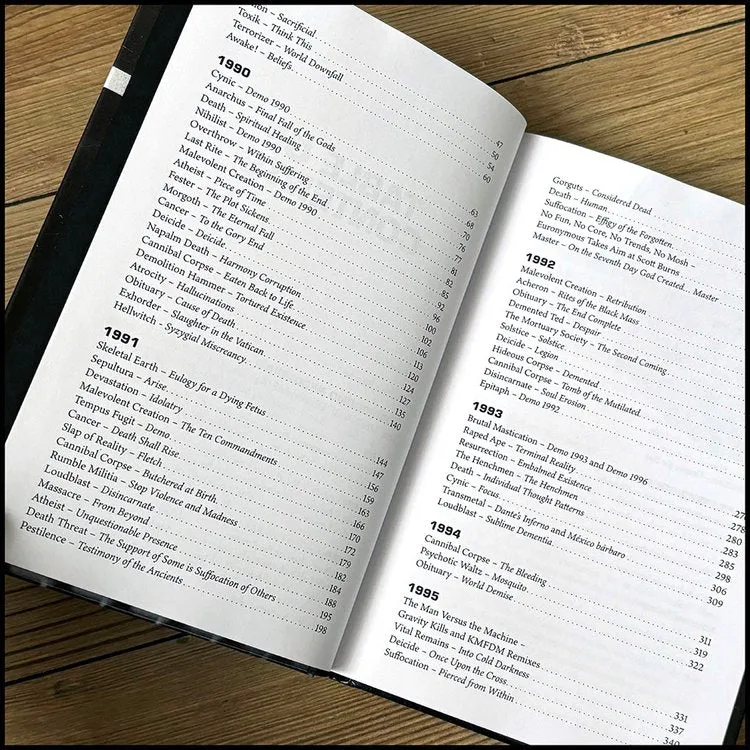 Sacrificial
Toxik – Think This 50
Terrorizer – World Downfall 54
Awake! – Beliefs 60
1990
Cynic – Demo 1990 63
Anarchus – Final Fall of the Gods 68
Death – Spiritual Healing 70
Nihilist – Demo 1990 76
Overthrow – Within Suffering 77
Last Rite – The Beginning of the End 81
Malevolent Creation – Demo 1990 82
Atheist – Piece of Time 85
Fester – The Plot Sickens 92
Morgoth – The Eternal Fall 96
Cancer – To the Gory End 100
Deicide – Deicide 102
Napalm Death – Harmony Corruption 106
Cannibal Corpse – Eaten Back to Life 113
Demolition Hammer – Tortured Existence 120
Atrocity – Hallucinations 124
Obituary – Cause of Death 127
Exhorder – Slaughter in the Vatican 135
Hellwitch – Syzygial Miscreancy 140
1991
Skeletal Earth – Eulogy for a Dying Fetus 144
Sepultura – Arise 147
Devastation – Idolatry 156
Malevolent Creation – The Ten Commandments 159
Tempus Fugit – Demo 163
Cancer – Death Shall Rise 166
Slap of Reality – Fletch 170
Cannibal Corpse – Butchered at Birth 172
Rumble Militia – Stop Violence and Madness 179
Loudblast – Disincarnate 182
Massacre – From Beyond 184
Atheist – Unquestionable Presence 188
Death Threat – The Support of Some is Suffocation of Others 195
Pestilence – Testimony of the Ancients 198
Gorguts – Considered Dead
Death – Human
Suffocation – Effigy of the Forgotten
No Fun, No Core, No Trends, No Mosh –
Euronymous Takes Aim at Scott Burns
Master – On the Seventh Day God Created... Master
1992
Malevolent Creation – Retribution
Acheron – Rites of the Black Mass
Obituary – The End Complete
Demented Ted – Despair
The Mortuary Society – The Second Coming
Solstice – Solstice
Deicide – Legion
Hideous Corpse – Demented
Cannibal Corpse – Tomb of the Mutilated
Disincarnate – Soul Erosion
Epitaph – Demo 1992
1993
Brutal Mastication – Demo 1993 and Demo 1996
Raped Ape – Terminal Reality 278
Resurrection – Embalmed Existence 280
The Henchmen – The Henchmen 283
Death – Individual Thought Patterns 285
Cynic – Focus 298
Transmetal – Dante's Inferno and México bárbaro 306
Loudblast – Sublime Dementia 309
1994
Cannibal Corpse – The Bleeding 311
Psychotic Waltz – Mosquito 319
Obituary – World Demise 322
1995
The Man Versus the Machine –
Gravity Kills and KMFDM Remixes 331
Vital Remains – Into Cold Darkness 337
Deicide – Once Upon the Cross 340
Suffocation – Pierced from Within